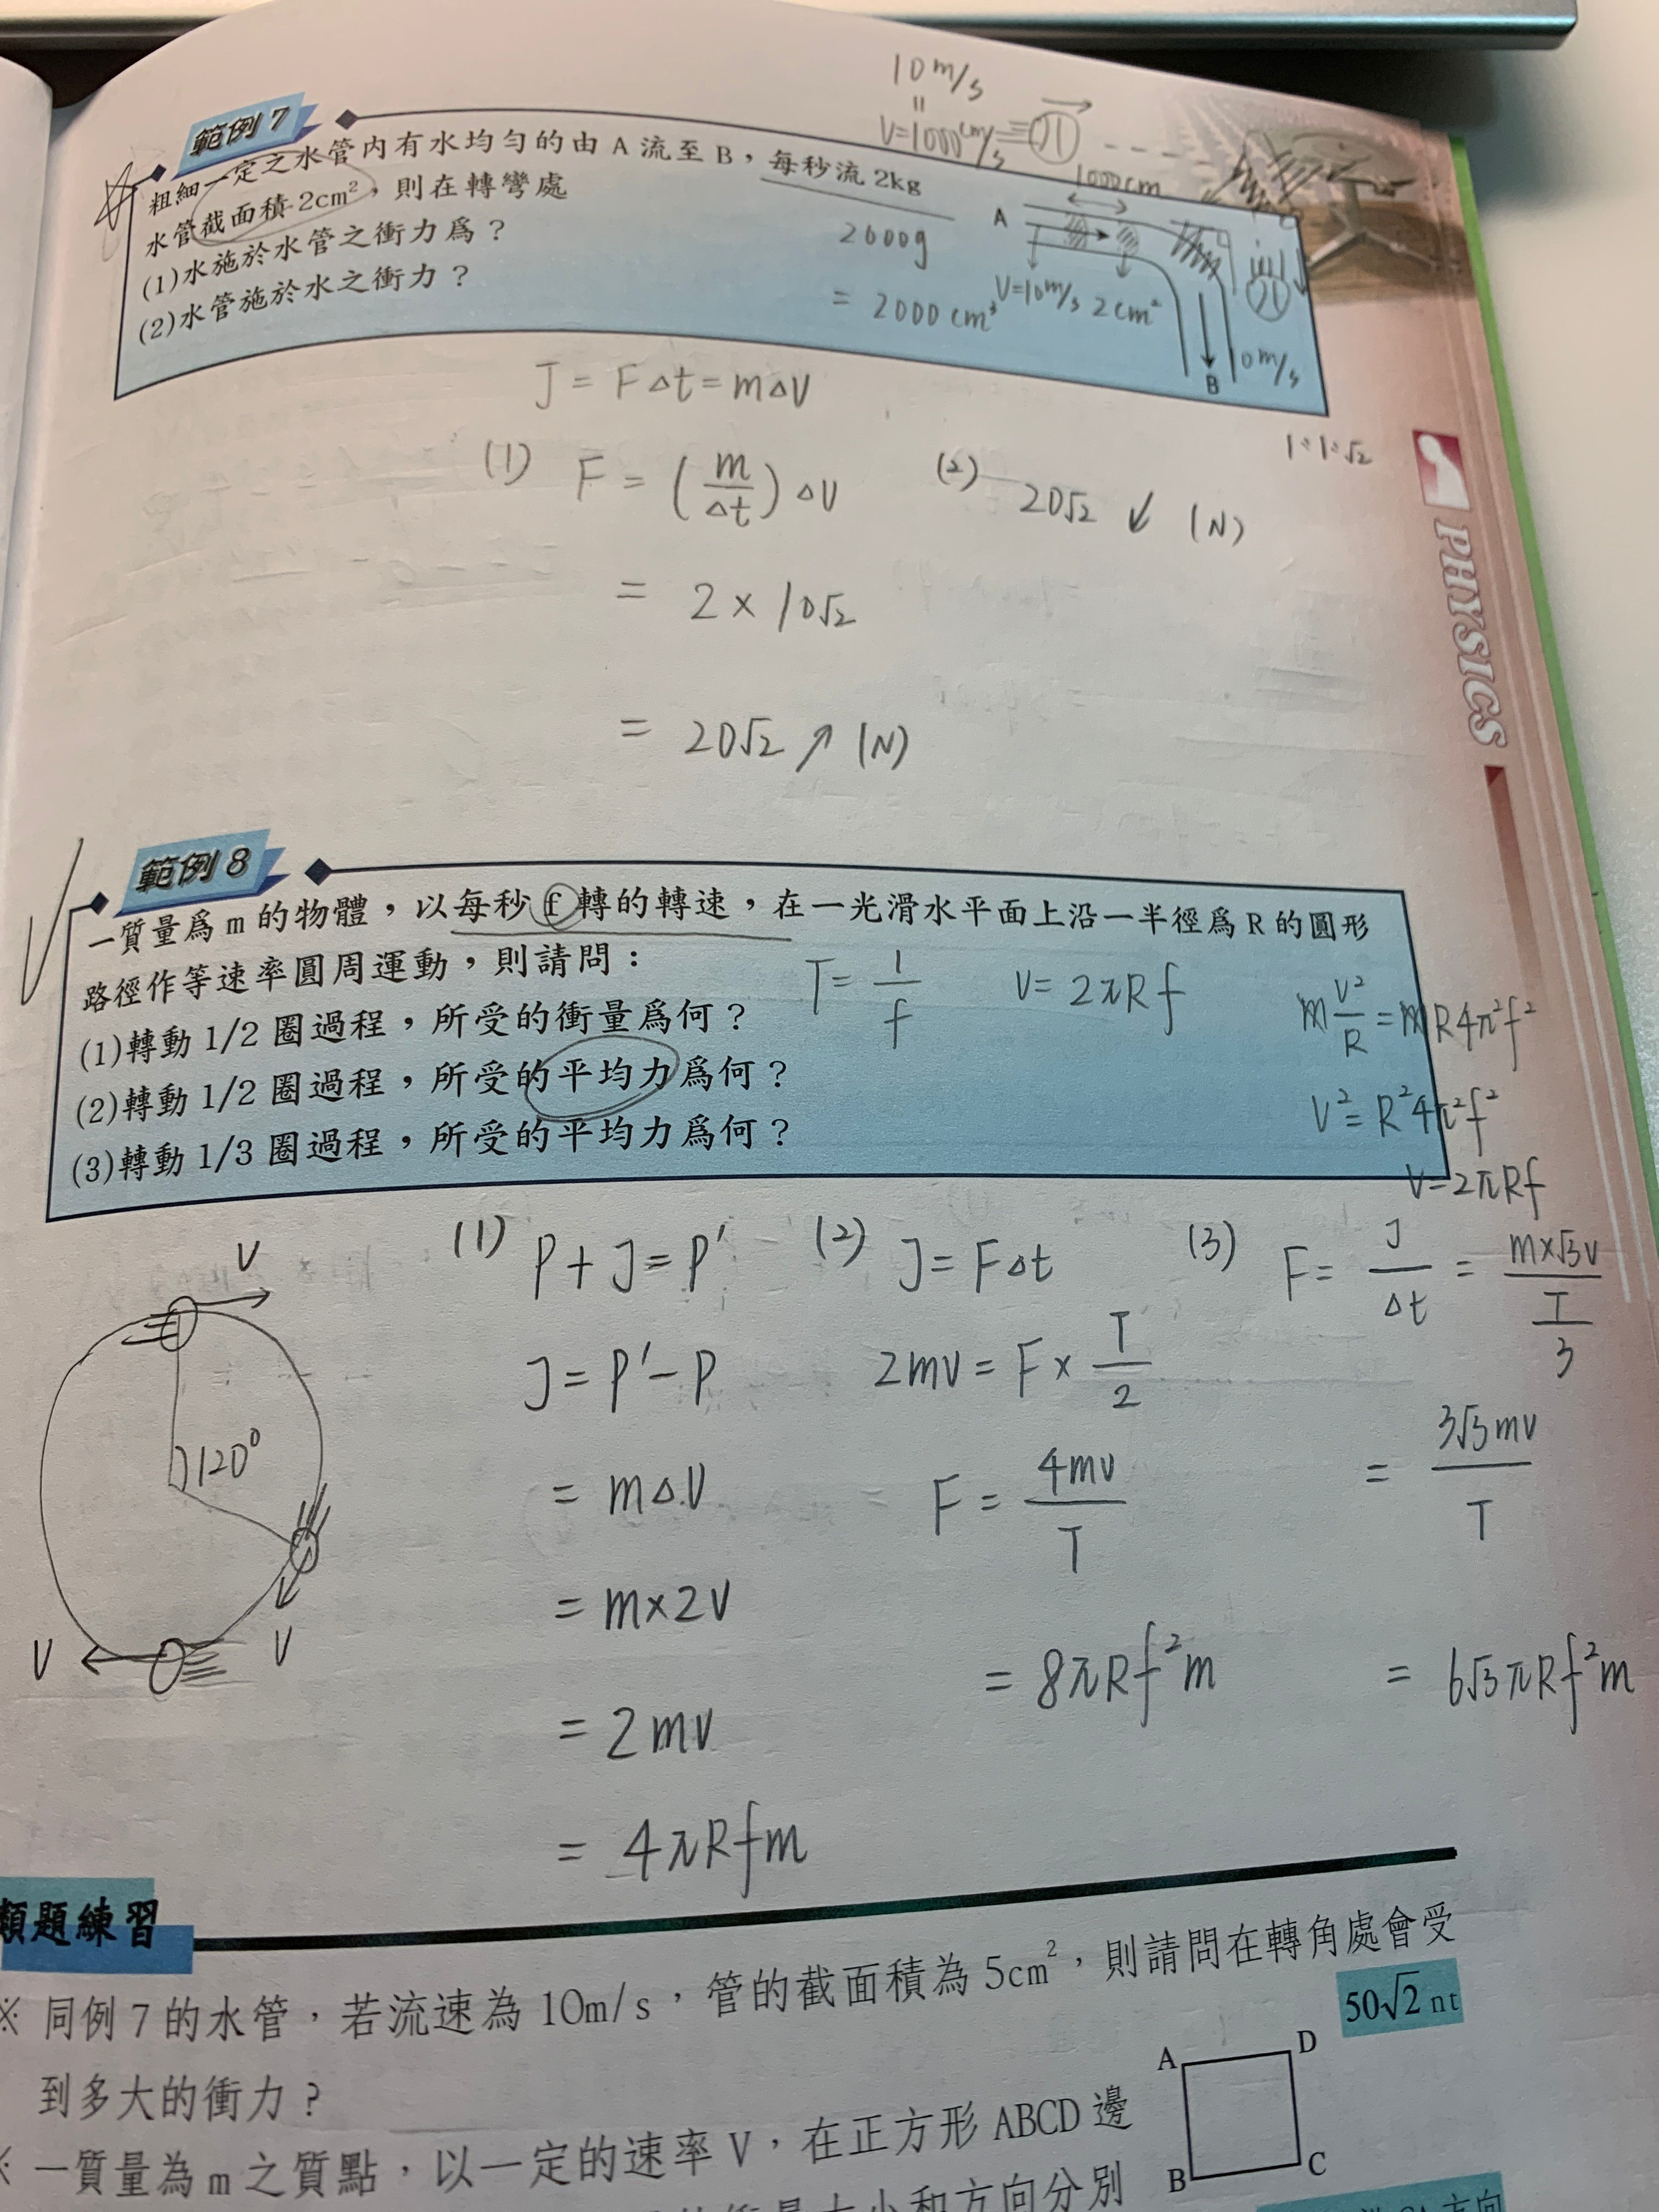 10 m/s
=
V=1000cm/s
範例 7
粗細一定之水管內有水均勻的由 A 流至 B，每秒流 2kg
水管截面積 2cm²，則在轉彎處
(1)水施於水管之衝力爲？
(2)水管施於水之衝力？
2000g
= 2000 cm³
1000cm
A
V=10m/s 2cm²
B
10m/s
J = F△t = m△V
1:1:√2
(1) F = (m/△t)△V
= 2 × 10√2
= 20√2 ↗ (N)
(2) 20√2 ↙ (N)
PHYSICS
範例 8
一質量爲 m 的物體，以每秒 f 轉的轉速，在一光滑水平面上沿一半徑爲 R 的圓形
路徑作等速率圓周運動，則請問：
(1)轉動 1/2 圈過程，所受的衝量爲何？
(2)轉動 1/2 圈過程，所受的平均力爲何？
(3)轉動 1/3 圈過程，所受的平均力爲何？
T = 1/f
V = 2πRf
m V²/R = mR4π²f²
V² = R²4π²f²
V=2πRf
V
120°
V
V
(1) P + J = P'
J = P' − P
= m△V
= m×2V
= 2mV
= 4πRfm
(2) J = F△t
2mV = F × T/2
F = 4mV/T
= 8πRf²m
(3) F = J/△t = m×√3V / T/3
= 3√3mV/T
= 6√3πRf²m
類題練習
※ 同例 7 的水管，若流速為 10m/s，管的截面積為 5cm²，則請問在轉角處會受
到多大的衝力？
50√2 nt
※ 一質量為 m 之質點，以一定的速率 V，在正方形 ABCD 邊
A
D
B
C
大小和方向分別